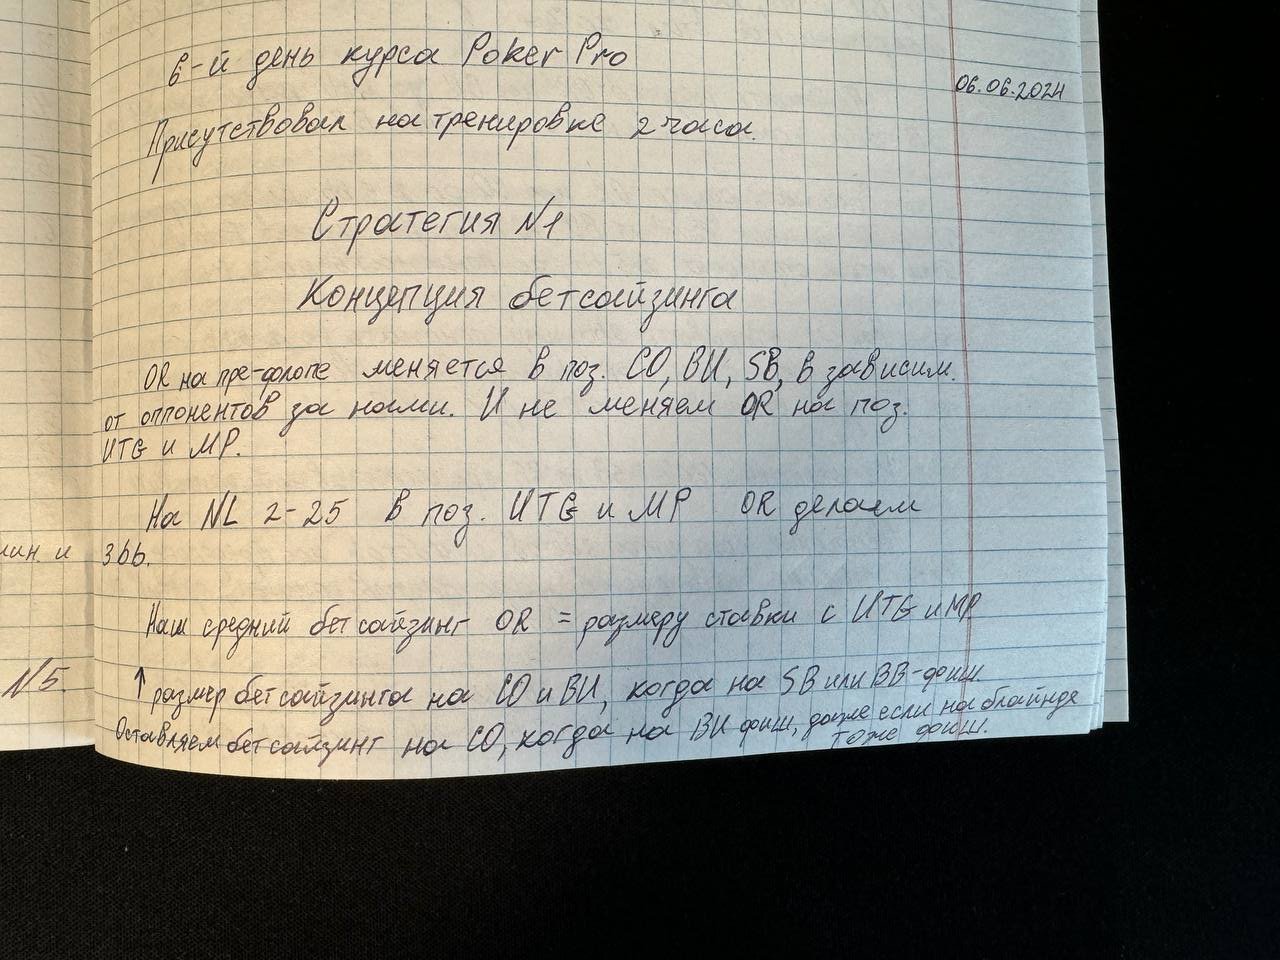 6-й день курса Poker Pro
06.06.2024
Присутствовал на тренировке 2 часа.
Стратегия N1
Концепция бетсайзинга
OR на пре-флопе меняется в поз. CO, BU, SB, в зависим.
от оппонентов за нами. И не меняем OR на поз.
UTG и MP.
На NL 2-25 в поз. UTG и MP OR делаем
3bb.
Наш средний бетсайзинг OR = размеру ставки с UTG и MP.
↑ размер бетсайзинга на CO и BU, когда на SB или BB-фиш.
Оставляем бетсайзинг на CO, когда на BU фиш, даже если на блайнде
тоже фиш.
и
N5.